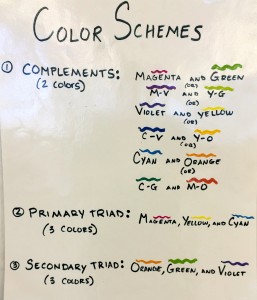 COLOR SCHEMES
① COMPLEMENTS: MAGENTA AND GREEN
(2 COLORS) (OR)
M-V AND Y-G
(OR)
VIOLET AND YELLOW
(OR)
C-V AND Y-O
(OR)
CYAN AND ORANGE
(OR)
C-G AND M-O
② PRIMARY TRIAD: MAGENTA, YELLOW, AND CYAN
(3 COLORS)
③ SECONDARY TRIAD: ORANGE, GREEN, AND VIOLET
(3 COLORS)